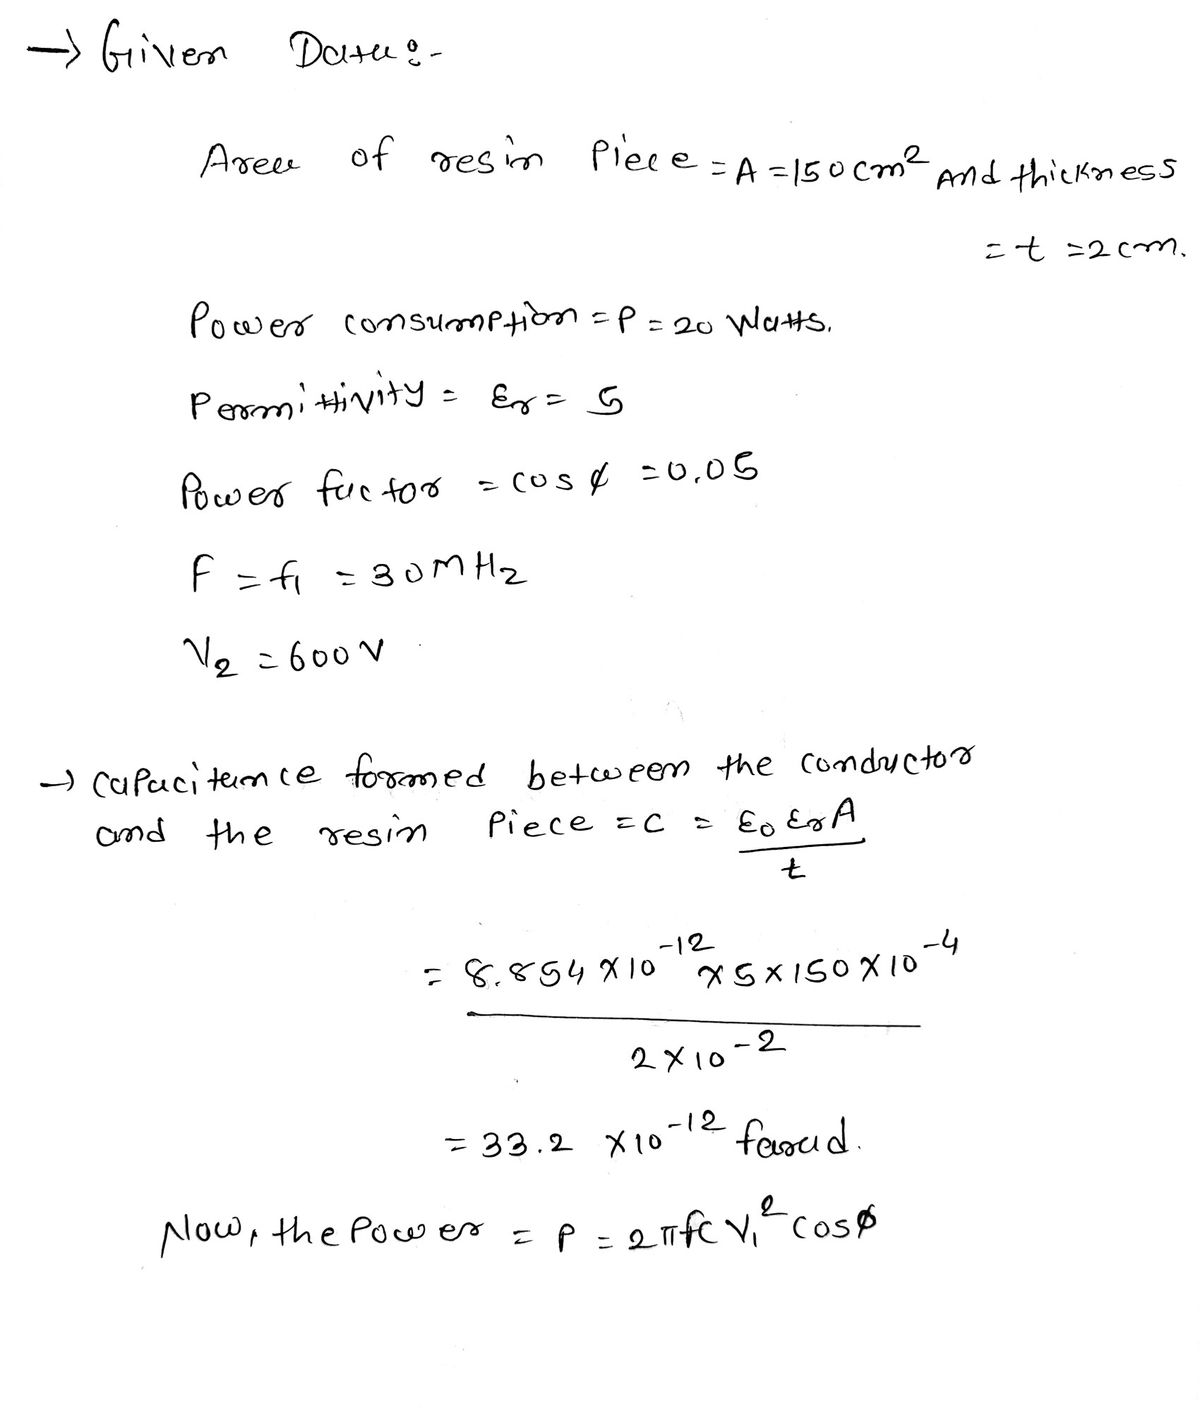 → Given Data:-
Area of resin Piece = A = 150 cm² And thickness
= t = 2 cm.
Power consumption = P = 20 Watts.
Permittivity = εr = 5
Power factor = cos ϕ = 0.05
F = f1 = 30 MHz
V2 = 600 V
→ Capacitance formed between the conductor
and the resin Piece = C = ε0 εr A / t
= 8.854 × 10^-12 × 5 × 150 × 10^-4 / 2 × 10^-2
= 33.2 × 10^-12 farad.
Now, the Power = P = 2πfc V1² cos ϕ